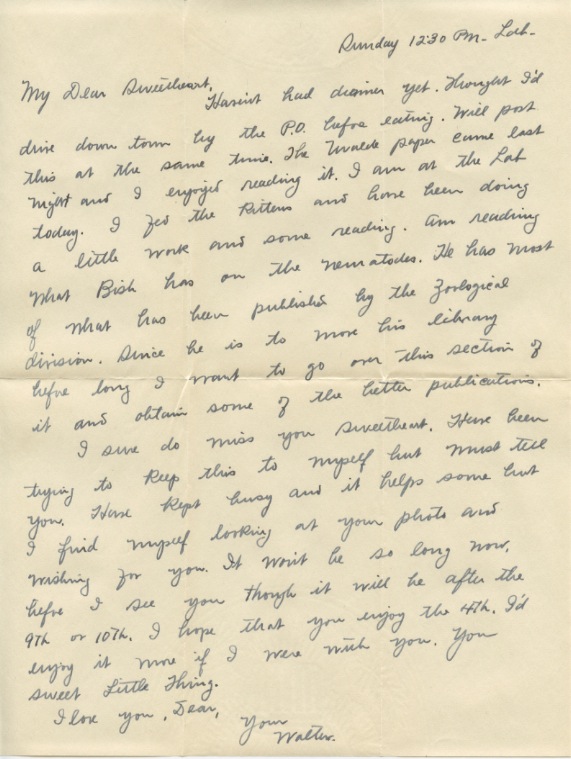 Sunday 12:30 PM- Lab-
My Dear Sweetheart,
Hasen't had dinner yet. Thought I'd
drive down town by the P.O. before eating. Will post
this at the same time. The paper came last
night and I enjoyed reading it. I am at the Lab
today. I fed the Kittens and have been doing
a little work and some reading. Am reading
what Bish has on the nematodes. He has most
of what has been published by the Zoological
division. Since he is to move his library
before long I want to go over this section of
it and obtain some of the better publications.
I sure do miss you sweetheart. Have been
trying to keep this to myself but must tell
you. Have kept busy and it helps some but
I find myself looking at your photo and
wishing for you. It won't be so long now,
before I see you though it will be after the
9th or 10th. I hope that you enjoy the 4th. I'd
enjoy it more if I were with you. You
sweet Little Thing.
I love you, Dear,
Your
Walter.